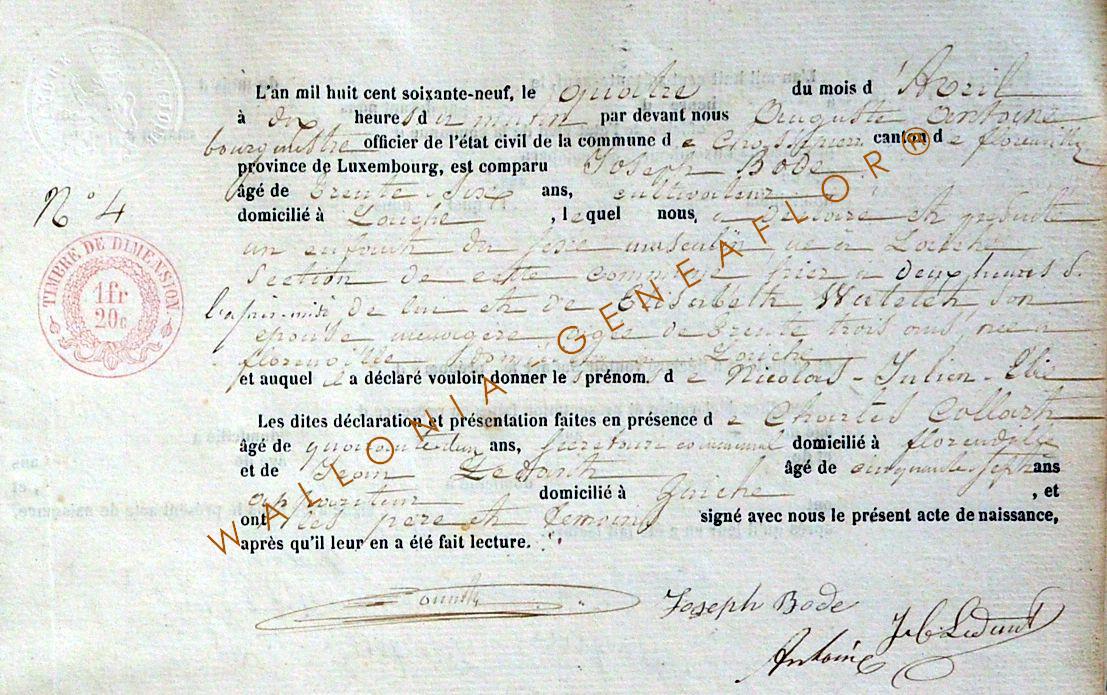 L'an mil huit cent soixante-neuf, le quatre du mois d'Avril
à dix heures du matin par devant nous Auguste Antoine
bourgmestre officier de l'état civil de la commune de canton de florenville
province de Luxembourg, est comparu Joseph Bode
âgé de trente six ans, cultivateur
N° 4
domicilié à , lequel nous, a déclaré et présenté
un enfant du sexe masculin né à
section de cette commune hier à deux heures de
l'après-midi de lui et de Elisabeth Watelet son
épouse ménagère âgée de trente trois ans, née à
florenville
TIMBRE DE DIMENSION
1fr
20c
et auquel il a déclaré vouloir donner les prénom de Nicolas-Julien-Elie
Les dites déclaration et présentation faites en présence de Charles Collart
âgé de ans, secrétaire communal domicilié à florenville
et de Jean âgé de cinquante sept ans
domicilié à , et
ont les père et témoins signé avec nous le présent acte de naissance,
après qu'il leur en a été fait lecture.
WALLONIA GENEAFLOR®
Joseph Bode
Antoine